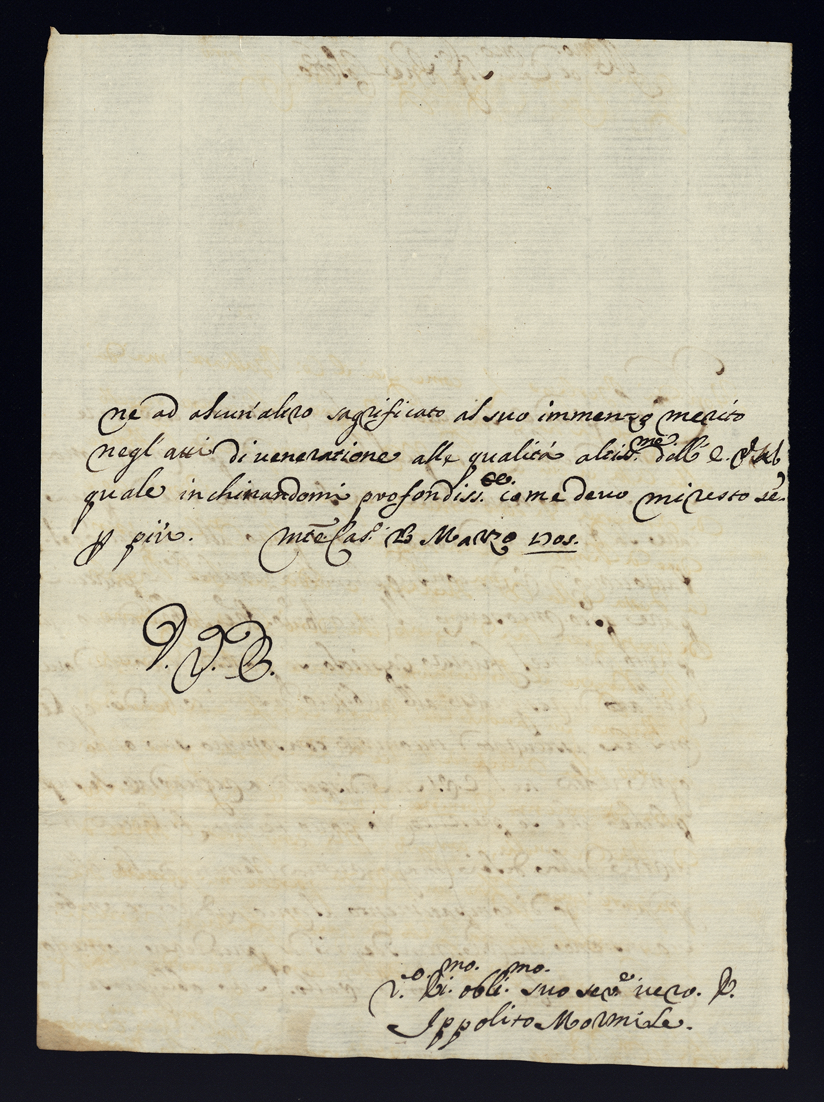 ne ad alcun'altro sagrificato al suo immenzo merito
negl'atti di veneratione alle qualità altiss.me dell'
quale inchinandomi profondiss.te come devo mi resto
più. Mte Cas. Marzo 1705.
obli.mo suo ser.e vero.
Ippolito Mormile.